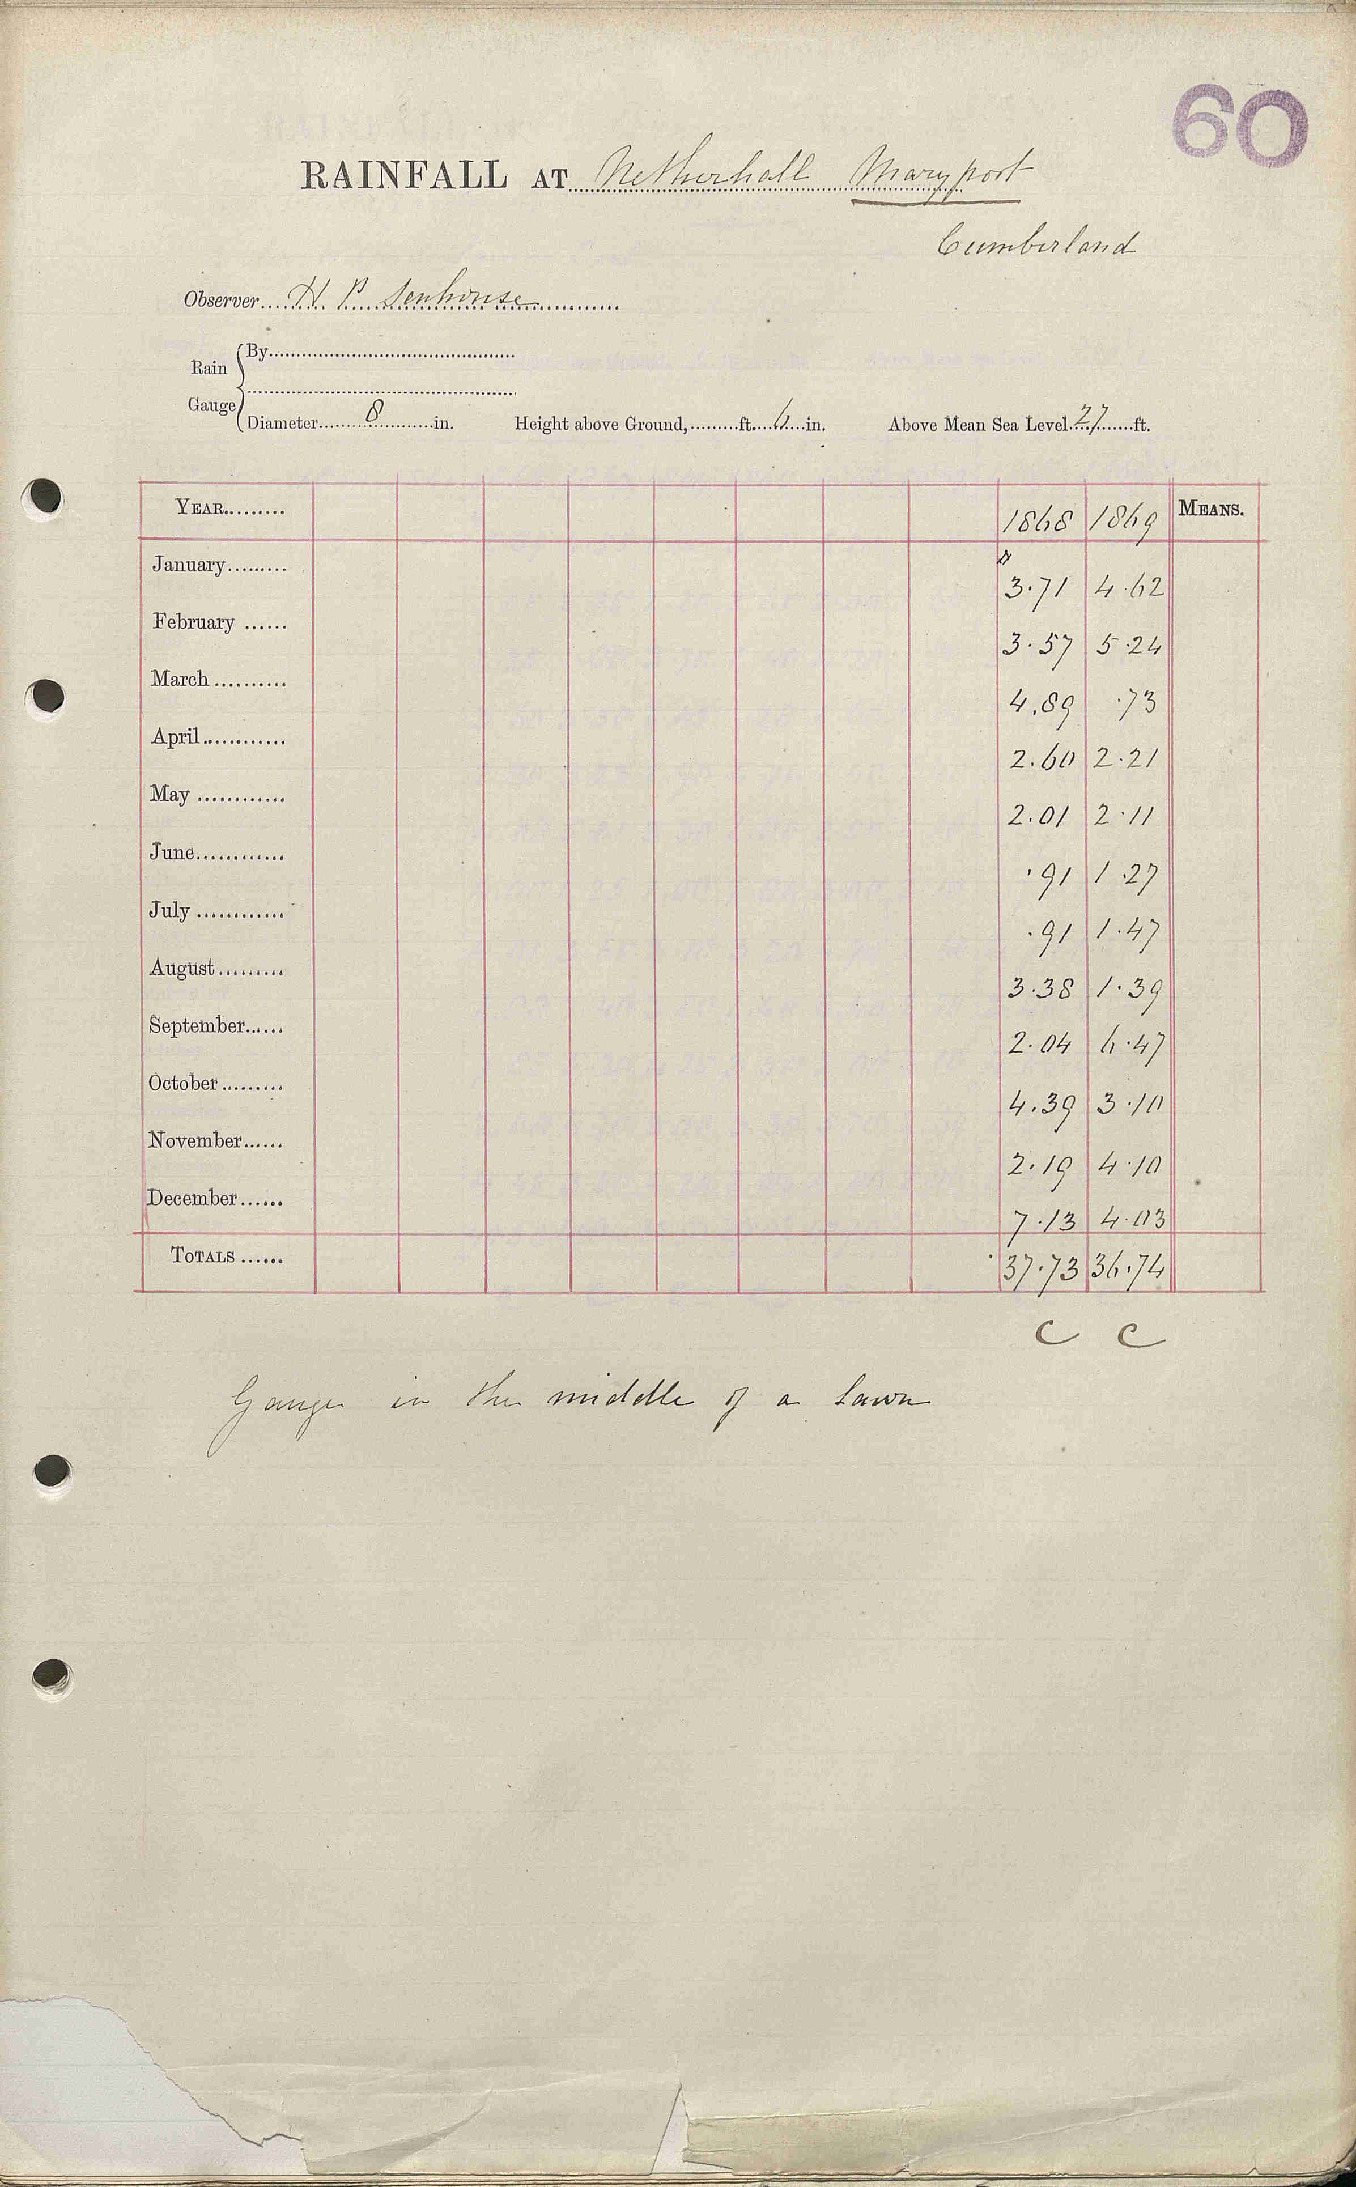 60
RAINFALL AT Netherhall Maryport
Cumberland
Observer H P Senhouse
Rain Gauge By
Diameter 8 in. Height above Ground, ft. 6 in. Above Mean Sea Level 27 ft.
YEAR 1868 1869 MEANS.
January 3.71 4.62
February 3.57 5.24
March 4.89 .73
April 2.60 2.21
May 2.01 2.11
June .91 1.27
July .91 1.47
August 3.38 1.39
September 2.04 6.47
October 4.39 3.10
November 2.19 4.10
December 7.13 4.03
TOTALS 37.73 36.74
C C
Gauge in the middle of a lawn